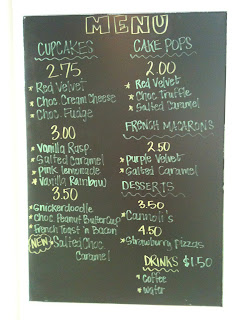 MENU
CUPCAKES
2.75
* Red Velvet
* Choc Cream Cheese
* Choc Fudge
3.00
* Vanilla Rasp.
* Salted Caramel
* Pink Lemonade
* Vanilla Rainbow
3.50
* Snickerdoodle
* Choc Peanut Butter Cup
* French Toast 'n Bacon
NEW * Salted Choc
Caramel
CAKE POPS
2.00
* Red Velvet
* Choc Truffle
* Salted Caramel
FRENCH MACARONS
2.50
* Purple Velvet
* Salted Caramel
DESSERTS
3.50
* Cannoli's
4.50
* Strawberry Pizzas
DRINKS $1.50
* Coffee
* Water